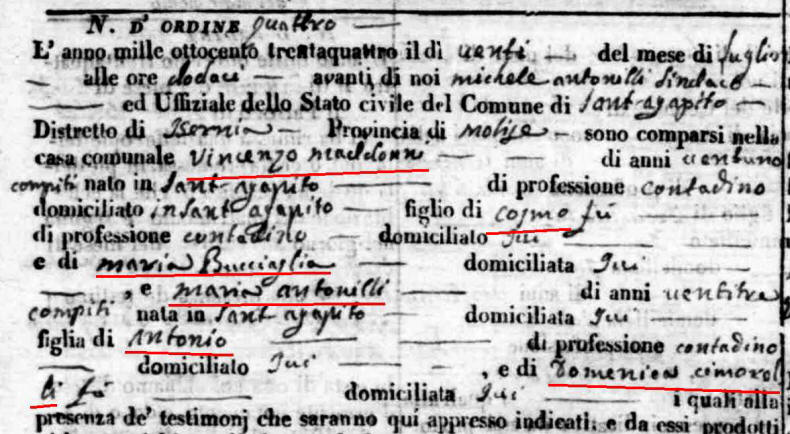 N. D' ORDINE quattro
L' anno mille ottocento trentaquattro il dì venti del mese di luglio
alle ore dodici avanti di noi michele antonilli Sindaco
ed Uffiziale dello Stato civile del Comune di Sant agapito
Distretto di Isernia Provincia di Molise sono comparsi nella
casa comunale Vincenzo maddonni di anni ventuno
compiti nato in Sant agapito di professione contadino
domiciliato in Sant agapito figlio di cosmo fù
di professione contadino domiciliato Ivi
e di maria Bucciaglia domiciliata Ivi
, e maria antonilli di anni ventitre
compiti nata in Sant agapito domiciliata Ivi
figlia di Antonio di professione contadino
domiciliato Ivi , e di Domenica cimorel
li fù domiciliata Ivi i quali alla
presenza de' testimonj che saranno qui appresso indicati; e da essi prodotti